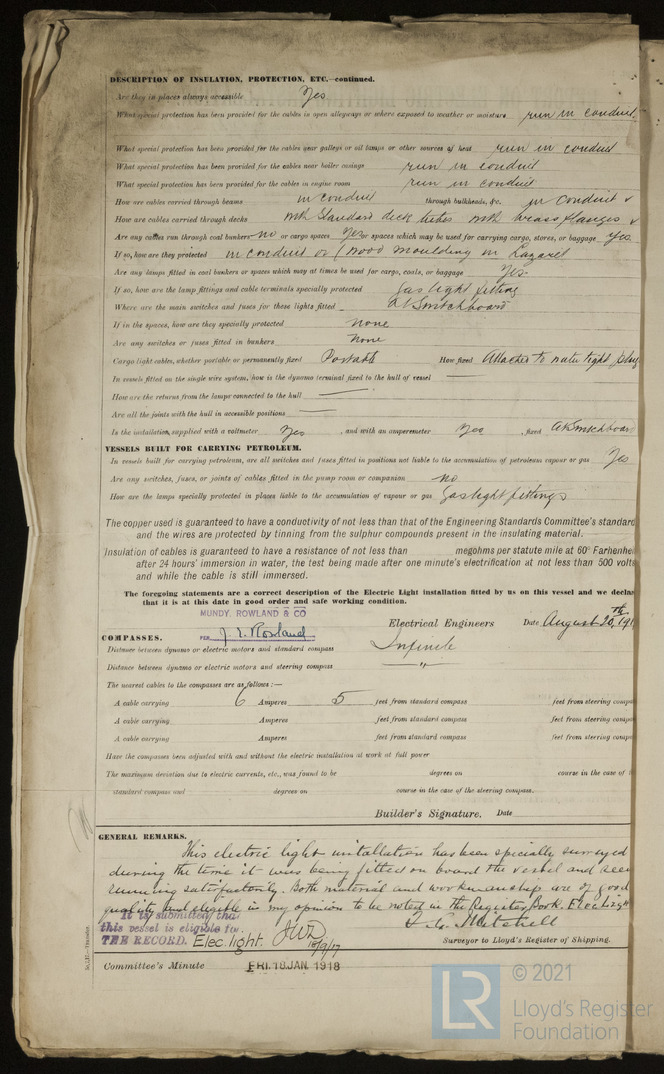 DESCRIPTION OF INSULATION, PROTECTION, ETC.—continued.
Are they in places always accessible Yes
What special protection has been provided for the cables in open alleyways or where exposed to weather or moisture run in conduit
What special protection has been provided for the cables near galleys or oil lamps or other sources of heat run in conduit
What special protection has been provided for the cables near boiler casings run in conduit
What special protection has been provided for the cables in engine room run in conduit
How are cables carried through beams in conduit through bulkheads, &c. in conduit &
How are cables carried through decks with standard deck tubes with brass flanges
Are any cables run through coal bunkers no or cargo spaces Yes or spaces which may be used for carrying cargo, stores, or baggage Yes
If so, how are they protected in conduit or wood moulding in Lazaret
Are any lamps fitted in coal bunkers or spaces which may at times be used for cargo, coals, or baggage Yes
If so, how are the lamp fittings and cable terminals specially protected gas tight fitting
Where are the main switches and fuses for these lights fitted At Switchboard
If in the spaces, how are they specially protected none
Are any switches or fuses fitted in bunkers none
Cargo light cables, whether portable or permanently fixed Portable How fixed Attached to water tight plug
In vessels fitted on the single wire system, how is the dynamo terminal fixed to the hull of vessel
How are the returns from the lamps connected to the hull
Are all the joints with the hull in accessible positions
Is the installation supplied with a voltmeter Yes , and with an amperemeter Yes , fixed At Switchboar
VESSELS BUILT FOR CARRYING PETROLEUM.
In vessels built for carrying petroleum, are all switches and fuses fitted in positions not liable to the accumulation of petroleum vapour or gas Yes
Are any switches, fuses, or joints of cables fitted in the pump room or companion no
How are the lamps specially protected in places liable to the accumulation of vapour or gas Gas tight fittings
The copper used is guaranteed to have a conductivity of not less than that of the Engineering Standards Committee's standard
and the wires are protected by tinning from the sulphur compounds present in the insulating material.
Insulation of cables is guaranteed to have a resistance of not less than megohms per statute mile at 60° Farhenhei
after 24 hours' immersion in water, the test being made after one minute's electrification at not less than 500 volts
and while the cable is still immersed.
The foregoing statements are a correct description of the Electric Light installation fitted by us on this vessel and we decla
that it is at this date in good order and safe working condition.
MUNDY, ROWLAND & CO
PER J. E. Rowland Electrical Engineers Date August 20th, 191
COMPASSES.
Distance between dynamo or electric motors and standard compass Infinite
Distance between dynamo or electric motors and steering compass "
The nearest cables to the compasses are as follows:—
A cable carrying 6 Amperes 5 feet from standard compass feet from steering compa
A cable carrying Amperes feet from standard compass feet from steering compa
A cable carrying Amperes feet from standard compass feet from steering compa
Have the compasses been adjusted with and without the electric installation at work at full power
The maximum deviation due to electric currents, etc., was found to be degrees on course in the case of t
standard compass and degrees on course in the case of the steering compass.
Builder's Signature. Date
GENERAL REMARKS.
This electric light installation has been specially surveyed
during the time it was being fitted on board the vessel and seen
running satisfactorily. Both material and workmanship are of good
quality and eligible in my opinion to be noted in the Register Book. Elec. light
It is submitted that
this vessel is eligible to
THE RECORD. Elec. light. JWD 18/9/17 Mitchell
Surveyor to Lloyd's Register of Shipping.
Committee's Minute FRI. 18 JAN. 1918
LR © 2021
Lloyd's Register
Foundation